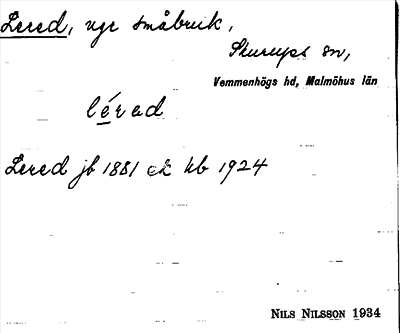 Lered, ugr småbruk,
Skurups sn,
Vemmenhögs hd, Malmöhus län
lérad
Lered jb 1881 ek kb 1924
NILS NILSSON 1934